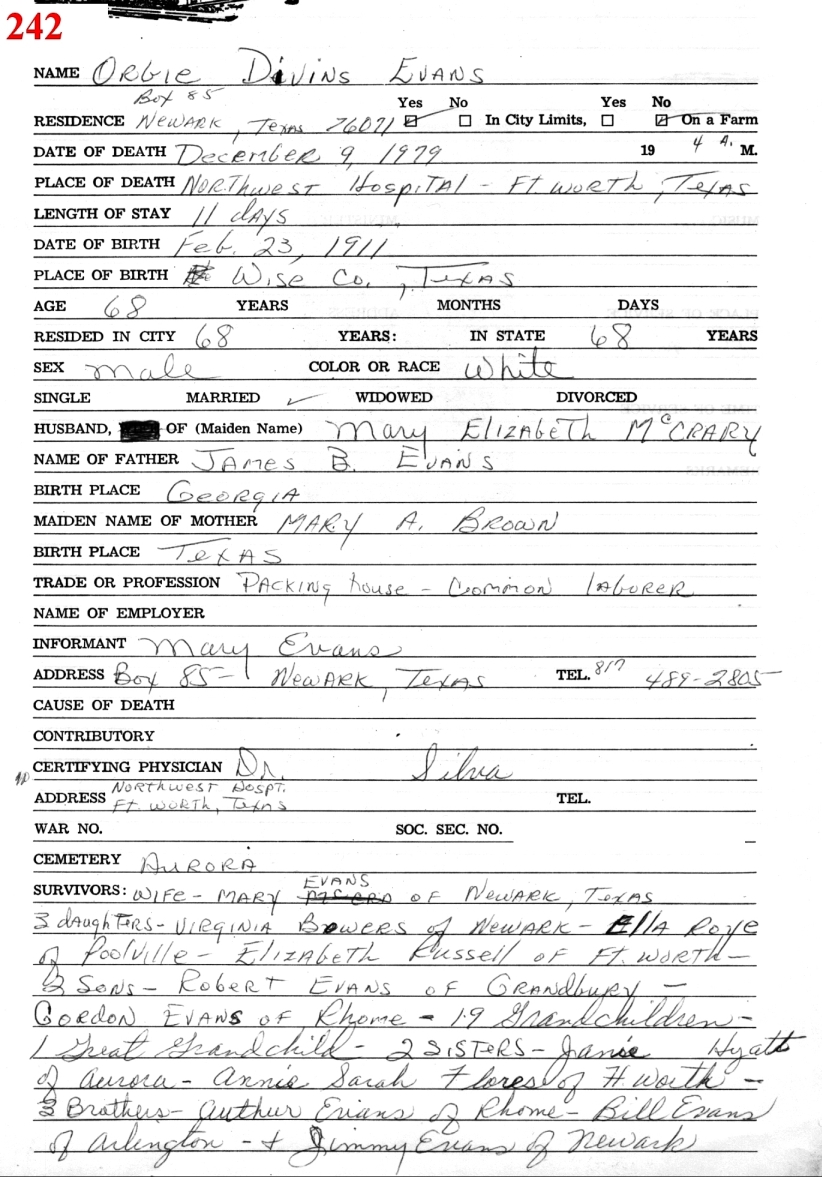 242
NAME Orbie Divins Evans
Box 85
Yes No Yes No
RESIDENCE Newark, Texas 76071 In City Limits, On a Farm
DATE OF DEATH December 9, 1979 19 4 A. M.
PLACE OF DEATH Northwest Hospital - Ft. Worth, Texas
LENGTH OF STAY 11 days
DATE OF BIRTH Feb. 23, 1911
PLACE OF BIRTH Wise Co., Texas
AGE 68 YEARS MONTHS DAYS
RESIDED IN CITY 68 YEARS: IN STATE 68 YEARS
SEX male COLOR OR RACE White
SINGLE MARRIED ✓ WIDOWED DIVORCED
HUSBAND, OF (Maiden Name) Mary Elizabeth McCrary
NAME OF FATHER James B. Evans
BIRTH PLACE Georgia
MAIDEN NAME OF MOTHER Mary A. Brown
BIRTH PLACE Texas
TRADE OR PROFESSION Packing house - Common laborer
NAME OF EMPLOYER
INFORMANT Mary Evans
ADDRESS Box 85 - Newark, Texas TEL. 817 489-2805
CAUSE OF DEATH
CONTRIBUTORY
CERTIFYING PHYSICIAN Dr. Silva
Northwest Hospt.
ADDRESS Ft. Worth, Texas TEL.
WAR NO. SOC. SEC. NO.
CEMETERY Aurora
SURVIVORS: Wife - Mary Evans of Newark, Texas
3 daughters - Virginia Bowers of Newark - Ella Roye
of Poolville - Elizabeth Russell of Ft. Worth -
2 Sons - Robert Evans of Grandbury -
Gordon Evans of Rhome - 19 Grandchildren -
1 Great Grandchild - 2 Sisters - Janie Hyatt
of Aurora - Annie Sarah Flores of Ft. Worth -
3 Brothers - Authur Evans of Rhome - Bill Evans
of Arlington - & Jimmy Evans of Newark